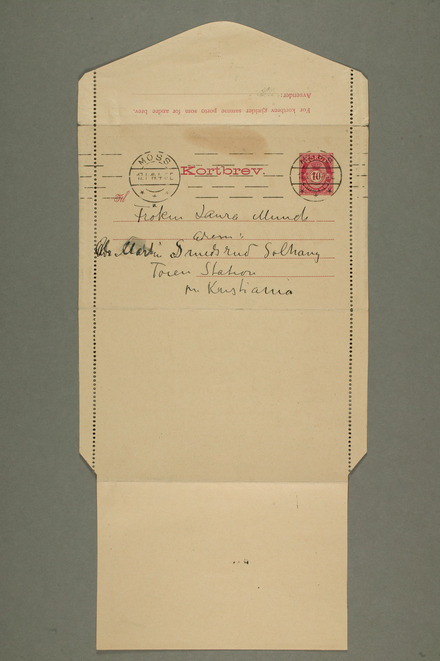 For kortbrev gjælder samme porto som for andre brev.
Afsender:
MOSS
Kortbrev.
NORGE
10
Til
Frøken Laura Munch
adr:
Martin Smedsrud Solhaug
Station
pr Kristiania